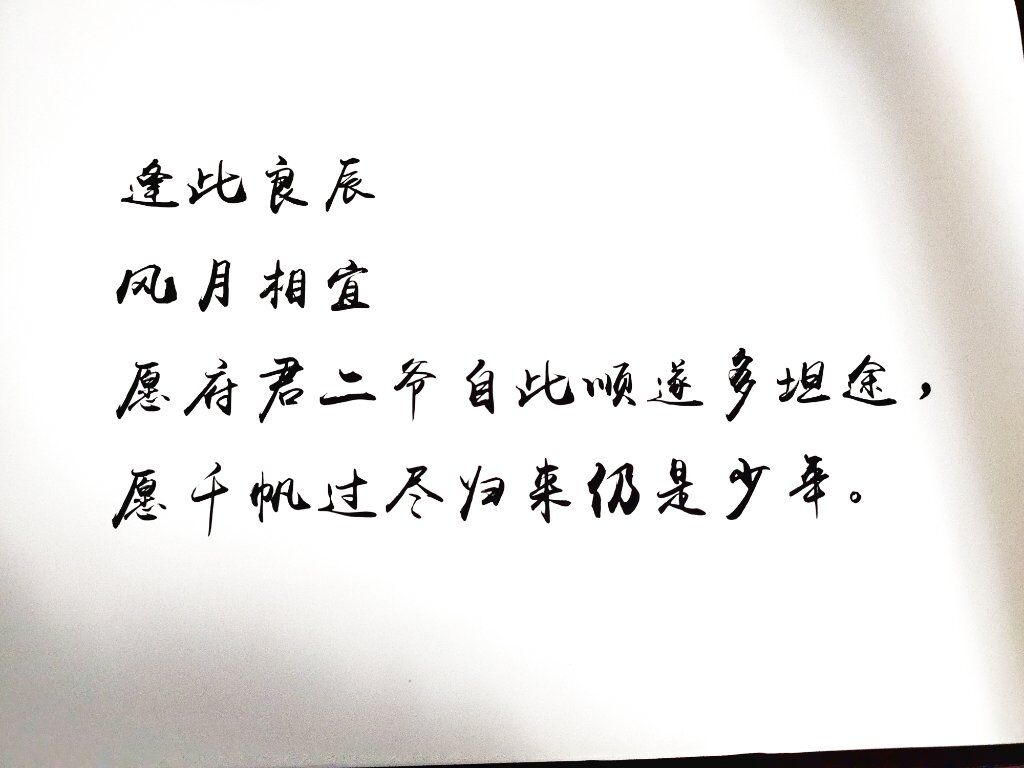 逢此良辰
风月相宜
愿府君二爷自此顺遂多坦途，
愿千帆过尽归来仍是少年。